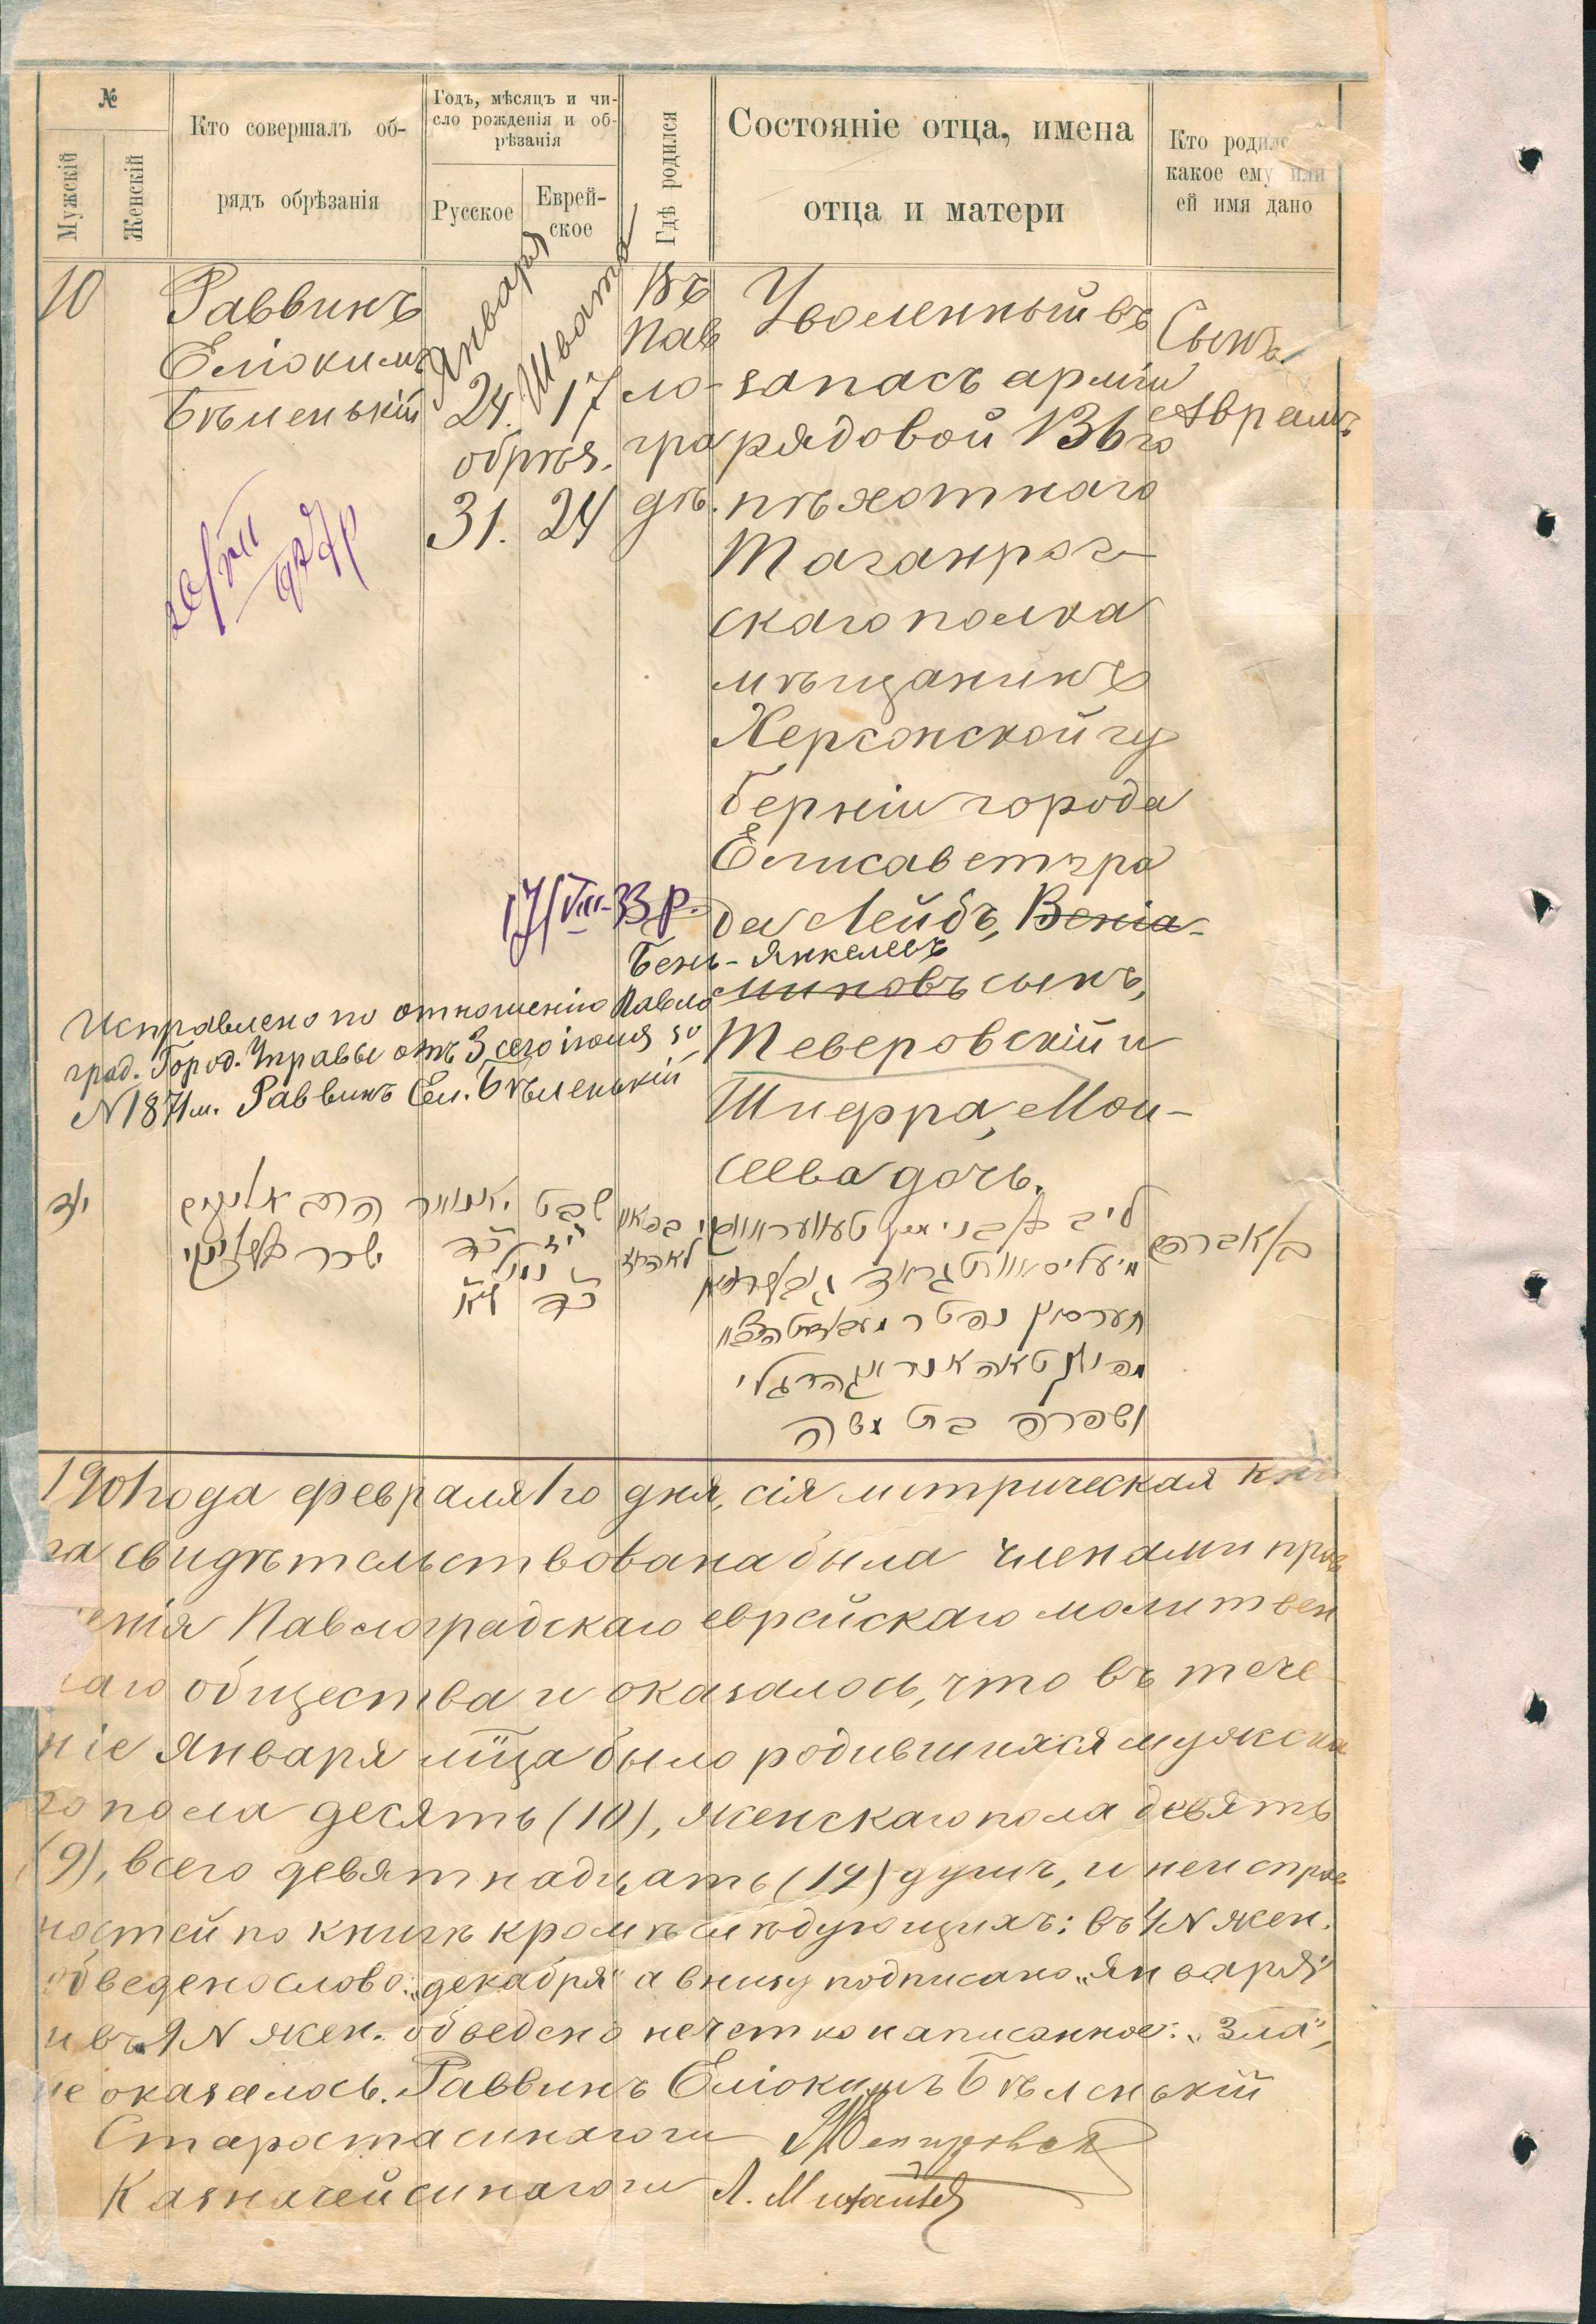 №
Мужскій
Женскій
Кто совершалъ об-
рядъ обрѣзанія
Годъ, мѣсяцъ и чи-
сло рожденія и об-
рѣзанія
Русское
Еврей-
ское
Гдѣ родился
Состояніе отца, имена
отца и матери
Кто родилс
какое ему или
ей имя дано
10
Раввинъ
Еліокимъ
Бѣленькій
Января
24.
обрѣз.
31.
Швата
17
24
Въ
Пав
ло-
гра
дѣ.
Уволенный въ
запасъ арміи
рядовой 136го
пѣхотнаго
Таганрог-
скаго полка
мѣщанинъ
Херсонской гу
берніи города
Елисаветгра
да Лейбъ, Веніа-
Бень-Янкелевъ
миновъ сынъ,
Теверовскій и
Шифра, Мои-
сеева дочь.
Сынъ
Аврамъ
17/VIII-33 р.
Исправлено по отношенію Павло
град. Город. Управы отъ 3 сего іюня за
№ 1871м. Раввинъ Ел. Бѣленькій
שבט יאנואר הרב אליקים
ושפרה בת משה
1901 года февраля 1го дня, сія метрическая кни
га свидѣтельствована была членами прав
енія Павлоградскаго еврейскаго молитвен
наго общества и оказалось, что въ тече-
ніе Января мѣ̃ца было родившихся мужска
го пола десять (10), женскаго пола девять
(9), всего девятнадцать (19) душъ, и неисправ
ностей по книгѣ кромѣ слѣдующихъ: въ 4 N жен.
обведено слово: „декабря“ а внизу подписано „Января“
и въ 9 N жен. обведено нечетко написанное: „Зла“,
не оказалось. Раввинъ Еліокимъ Бѣленькій
Староста синагоги
Казначей синагоги Л.